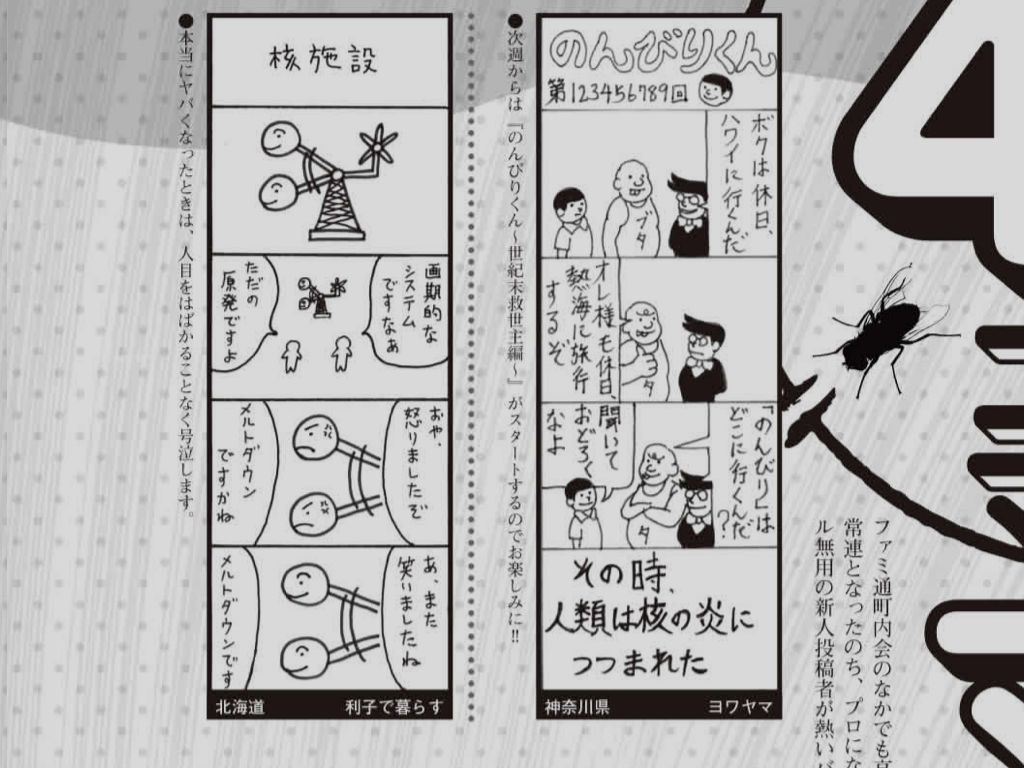 のんびりくん
第123456789回
ボクは休日、
ハワイに行くんだ
ブタ
オレ様も休日、
熱海に旅行
するぞ
タ
「のんびり」は
どこに行くんだ
?
聞いて
おどろく
なよ
タ
その時、
人類は核の炎に
つつまれた
神奈川県 ヨワヤマ
●次週からは『のんびりくん〜世紀末救世主編〜』がスタートするのでお楽しみに!!
核施設
画期的な
システム
ですなぁ
ただの
原発ですよ
おや、
怒りましたぞ
メルトダウン
ですかね
あ、また
笑いましたね
メルトダウンです
北海道 利子で暮らす
●本当にヤバくなったときは、人目をはばかることなく号泣します。
ファミ通町内会のなかでも
常連となったのち、プロにな
ル無用の新人投稿者が熱い